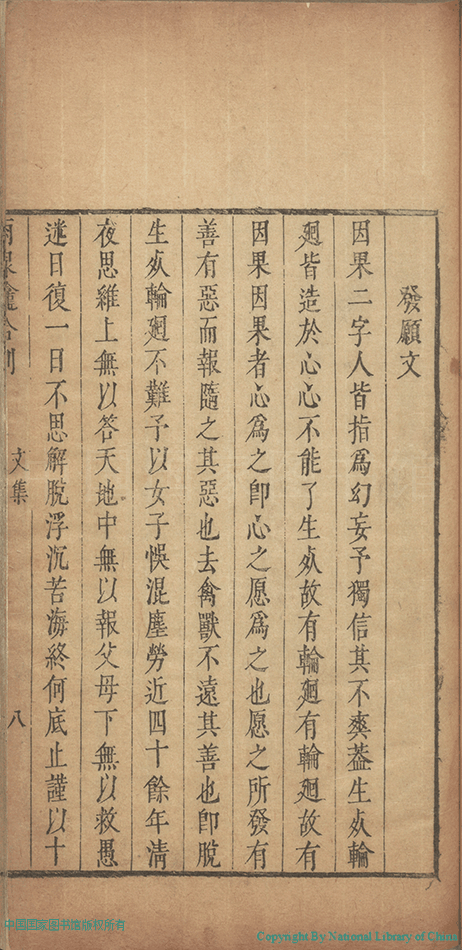 發願文
因果二字人皆指爲幻妄予獨信其不爽葢生死輪
廻皆造於心心不能了生死故有輪廻有輪廻故有
因果因果者心爲之卽心之愿爲之也愿之所發有
善有惡而報隨之其惡也去禽獸不遠其善也卽脫
生死輪廻不難予以女子悞混塵勞近四十餘年清
夜思維上無以答天地中無以報父母下無以救愚
迷日復一日不思解脫浮沉苦海終何底止謹以十
文集
八
中国国家图书馆版权所有
Copyright By National Library of China